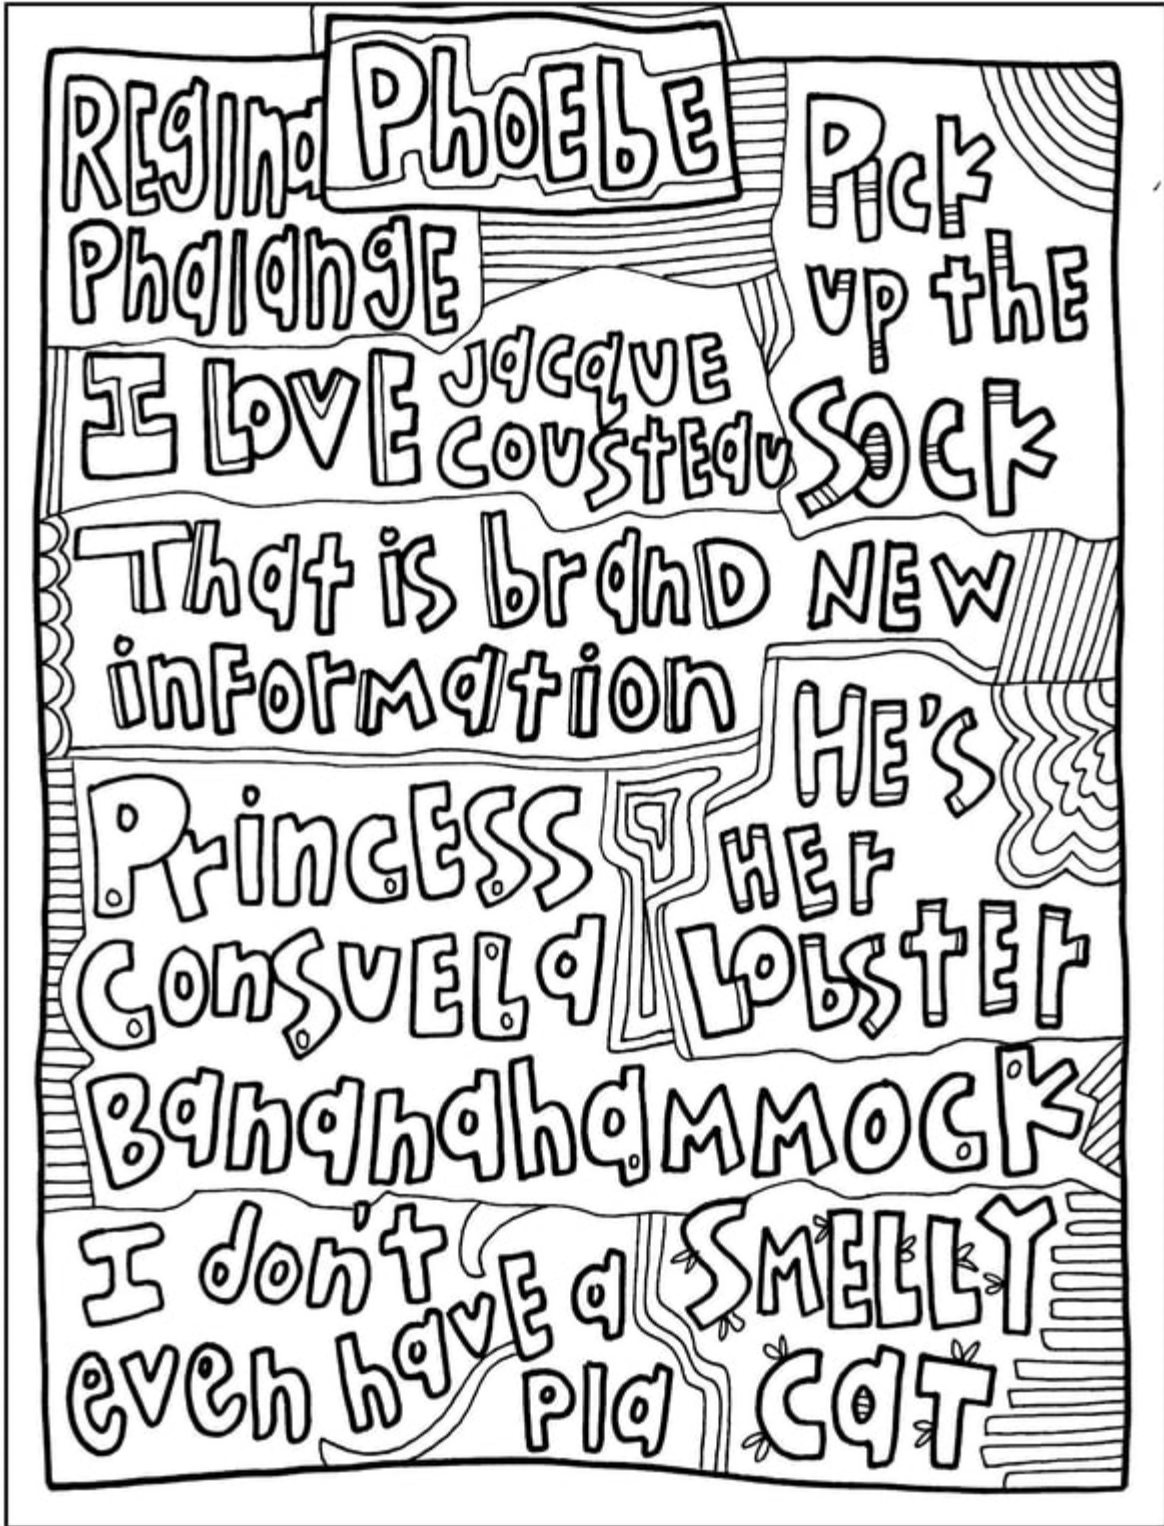 PhoEbE
REgina
PhalangE
Pick
up thE
SOCK
I LOVE JacquE
COUSTEau
That is branD NEW
inFormation
HE'S
HEr
LObSTEr
PrincESS
ConSUELa
BananahaMMOCK
I don't
even havE a
pla
SMELLY
CaT